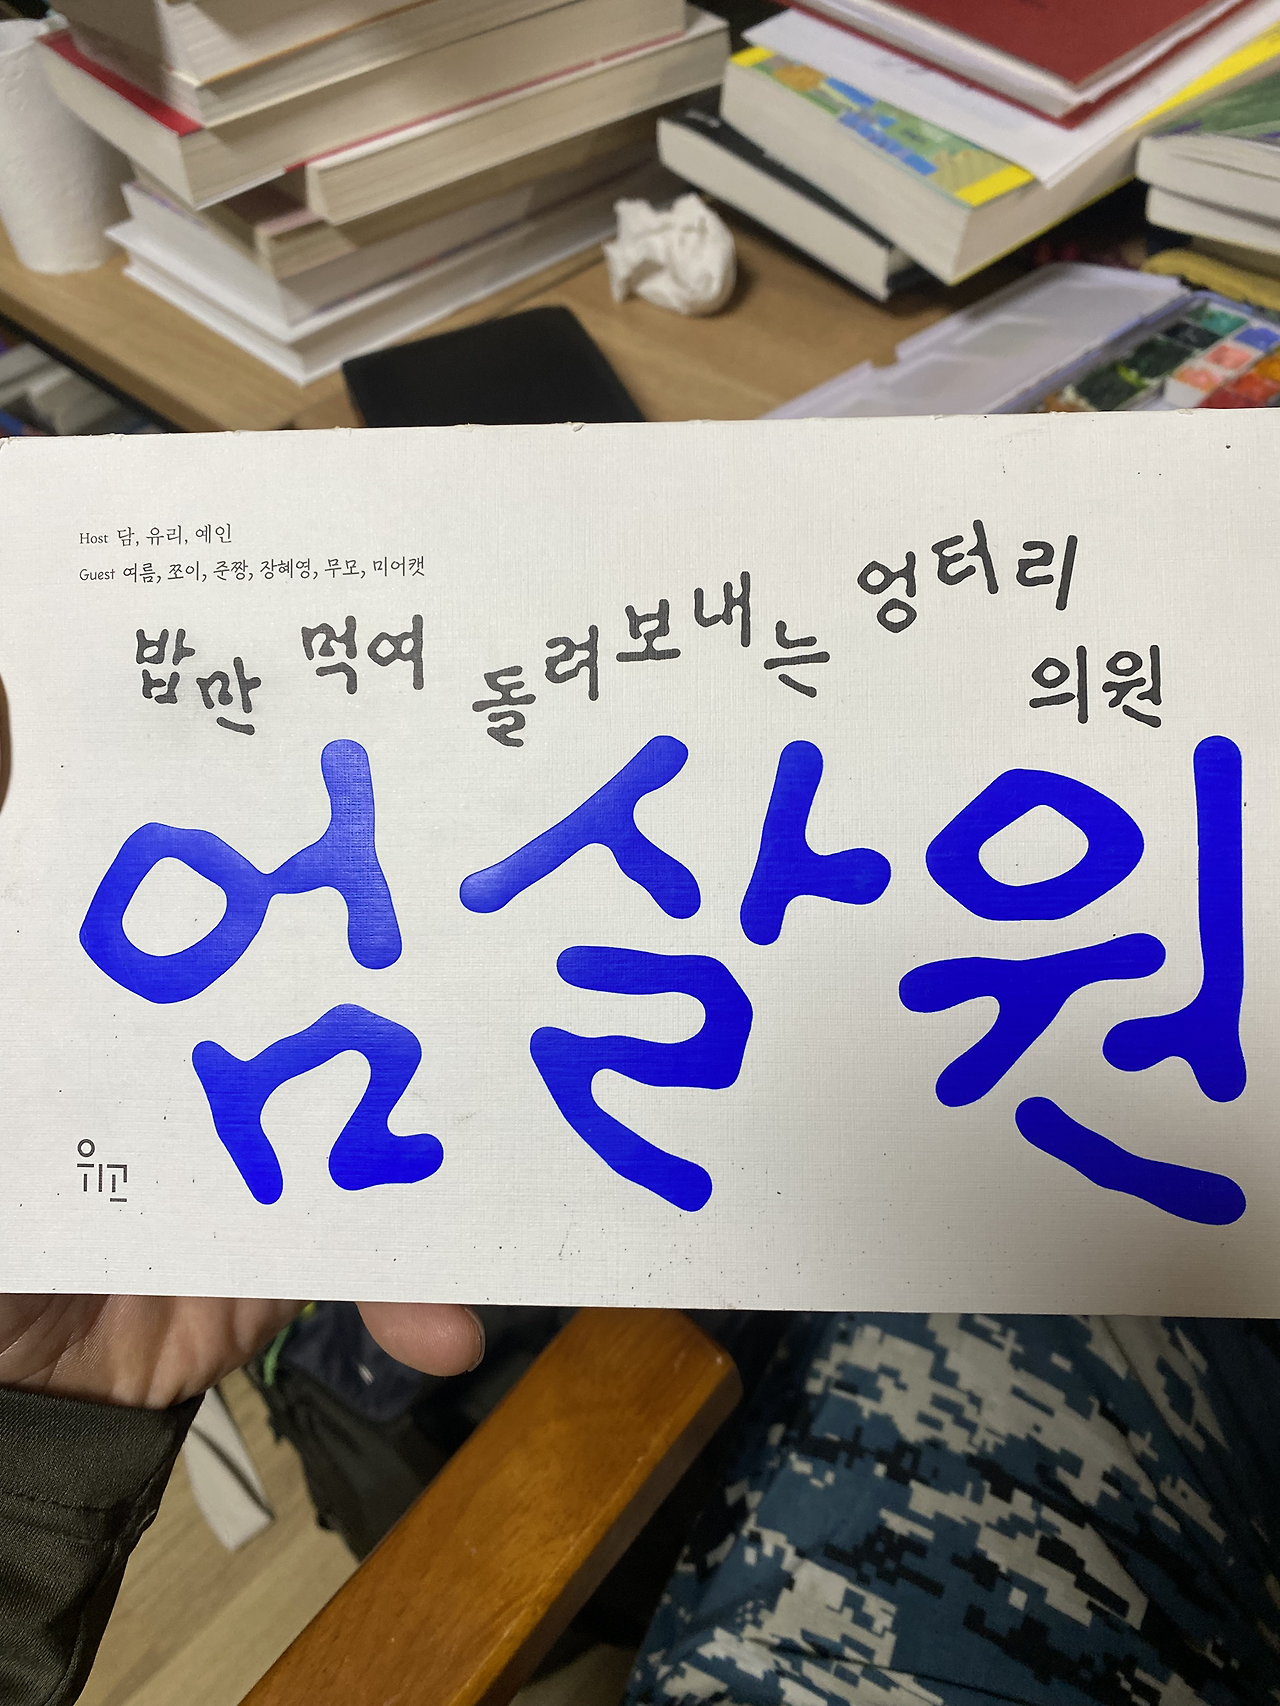 Host 담, 유리, 예인
Guest 여름, 쪼이, 준짱, 장혜영, 무모, 미어캣
밥만 먹여 돌려보내는 엉터리 의원
엄살원
위고